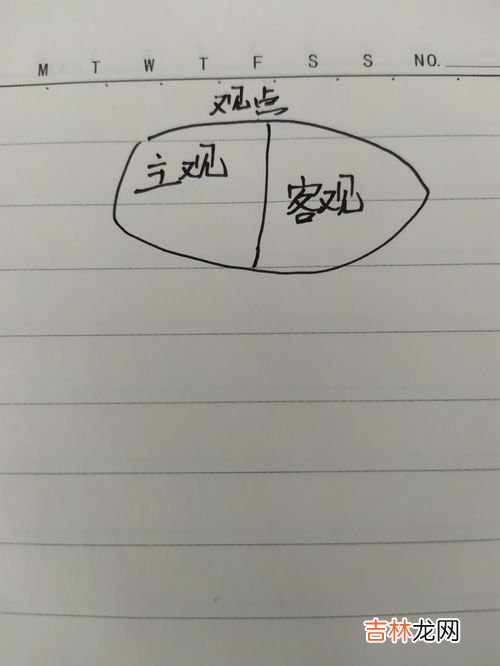 M T W T F S S NO.
观点
主观
客观
吉林龙网